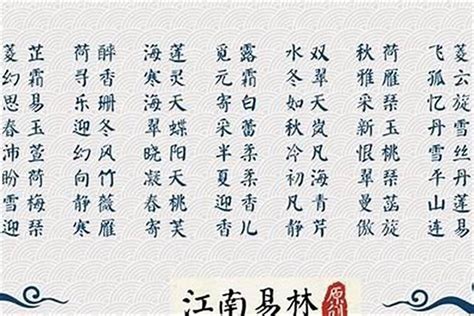 菱芷 荷醉 海莲 觅露 水双 秋荷 飞菱
幻霜 寻香 寒灵 元霜 冬翠 雅雁 孤云
思易 乐珊 海天 寄白 易天 采琹 忆旋
春玉 迎冬 翠蝶 采蕾 秋岚 新玉 丹雪
沛萱 幻风 晓阳 半柔 冷凡 恨桃 雪丝
盼荷 向竹 凝天 夏柔 初海 翠琹 平丹
雪梅 静薇 春桃 迎香 曼菡 山莲
迎琹 寒雁 寄芙 香儿 静芹 傲旋 连易
江南易林
原创